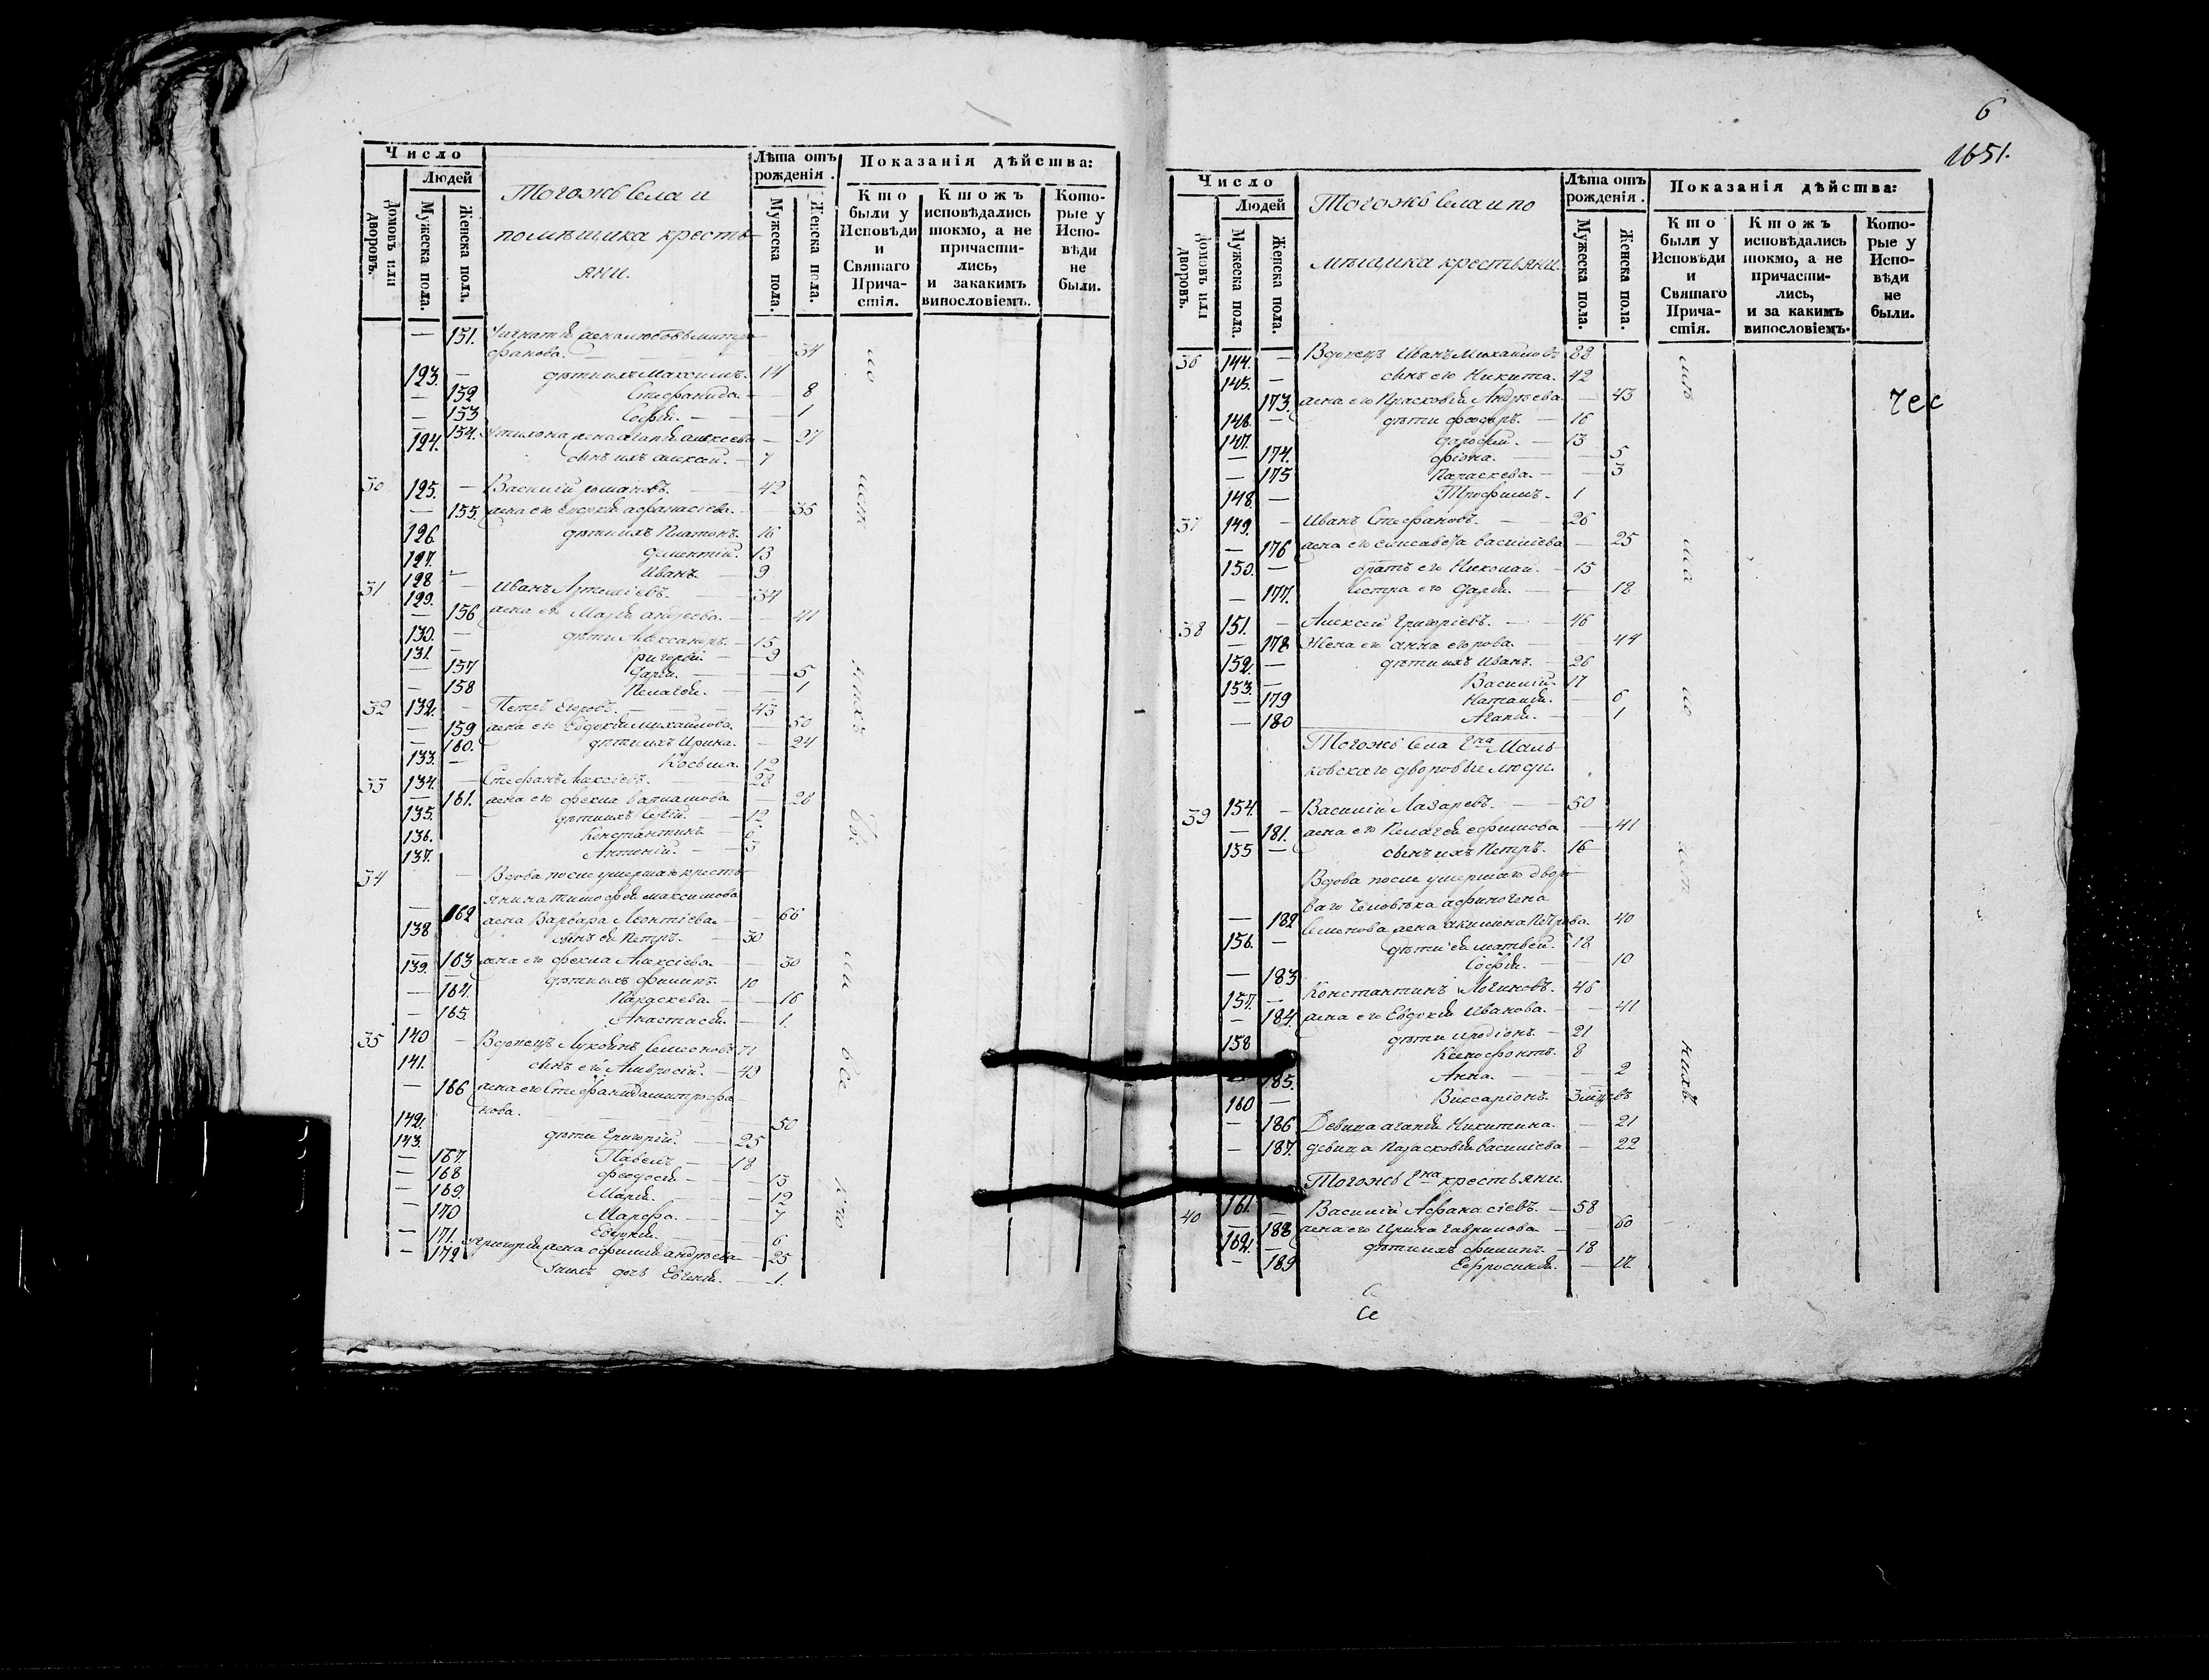 6
1651.
Число
Людей
Домовъ или дворовъ.
Мужеска пола.
Женска пола.
Тогожъ села и
помѣщика кресть-
яни.
Лѣта отъ рожденія.
Мужеска пола.
Женска пола.
Показанія дѣйства:
Кто были у Исповѣди и Святаго Причастія.
Ктожъ исповѣдались токмо, а не причастились, и закакимъ винословіемъ.
Которые у Исповѣди не были.
— 151. Игнатія жена любовь митро-
фанова. — 34
123. — дѣти ихъ Максимъ. 14
— 152 Стефанида. — 8
— 153 Софія. — 1
154. жена агафія алексеева — 27
124. сынъ ихъ алексей. — 7
30 125. — Василій романовъ. — 42
— 155. жена его афанасіева. — 35
126. дѣти ихъ Платонъ. 16
127. дементій. 13
128 — Иванъ — 9
31 129. — Иванъ — 34
— 156 жена его Марія андреева. — 41
130. — дѣти Александръ. — 15
131. — Григорій. — 9
— 157 дарія. — 5
— 158 Пелагея. — 1
32 132. — Петръ егоровъ. — 43
— 159 жена его Евдокія михайлова. — 50
— 160. дѣти ихъ Ирина. — 24
133. — Косьма. 12
33 134. — Стефанъ Алексіевъ. — 28
— 161. жена его фекла — 28
135. дѣти ихъ — 12
136. Константинъ — 6
137. Антоній. — 3
34 — Вдова после умершаго кресть-
янина тимофея максимова
— 162 жена Варвара Леонтіева — 66
138 сынъ ея Петръ. — 30
— 163 жена его фекла Алексіева. — 30
139. дѣти ихъ филипъ. 10
— 164. Параскева. — 16
— 165. Анастасія. — 1.
35 140 — Вдовецъ Лукіянъ Семеоновъ 71
141. сынъ его Амвросій. — 49
— 166 жена его Стефанида митрофа-
нова. — 50
142. дѣти Григорій. — 25
143. Павелъ — 18
— 167. феодосія — 13
— 168 Марія. — 12
— 169. Марфа. — 7
— 170 Евдокія. — 6
— 171. Григорія жена ефимія андреева — 25
— 172 у нихъ дочь Евгенія. — 1.
Число
Людей
Домовъ или дворовъ.
Мужеска пола.
Женска пола.
Тогожъ села и по
мѣщика крестьяни.
Лѣта отъ рожденія.
Мужеска пола.
Женска пола.
Показанія дѣйства:
Кто были у Исповѣди и Святаго Причастія.
Ктожъ исповѣдались токмо, а не причастились, и за какимъ винословіемъ.
Которые у Исповѣди не были.
36 144. — Вдовецъ Иванъ Михаиловъ 88
145. — сынъ его Никита. 42
173. жена его Прасковія Андреева — 43
146. — дѣти феодоръ. — 16
147. дорофей. — 13
— 174. — 5
— 175 Параскева. — 3
148. — Трофимъ. 1
37 149. — Иванъ Стефановъ. — 26
— 176 жена его елисавета василіева — 25
150. — братъ его Николай. — 15
— 177. сестра его дарія. — 18
38 151. — Алексей Григоріевъ. — 46
— 178 Жена его анна егорова. — 44
152. — дѣти ихъ Иванъ. — 26
153. — Василій. 17
— 179 Наталія. — 6
— 180 Агафія. — 1
Тогожъ села Гна Маль-
ковскаго дворовые люди.
39 154. — Василій Лазаревъ. — 50
— 181. жена его Пелагея ефимова — 41
155 — сынъ ихъ Петръ. 16
Вдова после умершаго дворо-
ваго человѣка афиногена
— 182 Семенова жена акилина Петрова. 40
156. — дѣти ея матвей. 18
— 183 Софія. — 10
157. — Константинъ Логиновъ. 46
— 184. жена его Евдокія Иванова. — 41
158 дѣти иродіонъ. — 21
Ксенофонтъ. 8
185. Анна. — 2
160 — Виссаріонъ.
— 186 Девица агафія Никитина. — 21
— 187. девица Парасковія василіева — 22
Тогожъ Гна крестьяни.
40 161. — Василій Афанасіевъ. — 58
— 188 жена его Ирина гаврилова — 60
162. — дѣти ихъ филипъ. — 18
— 189 Евфросинія. —